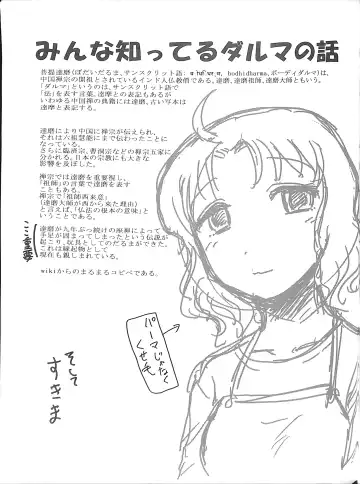 みんな知ってるダルマの話
菩提達磨(ぼだいだるま、サンスクリット語: बोधिधर्म, bodhidharma、ボーディダルマ)は、
中国禅宗の開祖とされているインド人仏教僧である。達磨、達磨祖師、達磨大師ともいう。
「ダルマ」というのは、サンスクリット語で
「法」を表す言葉。達摩との表記もあるが
いわゆる中国禅の典籍には達磨、古い写本は
達摩と表記する。
達磨により中国に禅宗が伝えられ、
それは六祖慧能にまで伝わったことに
なっている。
さらに臨済宗、曹洞宗などの禅宗五家に
分かれる。日本の宗教にも大きな
影響を及ぼした。
禅宗では達磨を重要視し、
「祖師」の言葉で達磨を表す
こともある。
禅宗で「祖師西来意」
(達磨大師が西から来た理由)
と言えば、「仏法の根本の意味」と
いうことである。
達磨が九年ぶっ続けの座禅によって
手足が腐ってしまったという伝説が
起こり、玩具としてのだるまができた。
これは縁起物として
現在も親しまれている。
wikiからのまるまるコピペである。
パーマじゃなく
くせ毛
そして
すきま